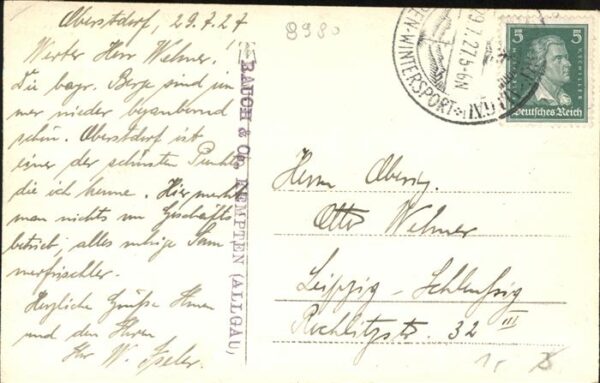 Oberstdorf, 29.7.27
8980
Werter Herr Welmer!
Die bayr. Berge sind im
mer wieder bezaubernd
schön. Oberstdorf ist
einer der schönsten Punkte
die ich kenne. Hier merkt
man nichts von Geschäfts
betrieb; alles ruhige Som
merfrischler.
Herzliche Grüße Ihnen
und den Ihren
Ihr W.
RAUCH & Co., KEMPTEN (ALLGÄU,
DEN-WINTERSPORT
29.7.27.5-6N
(ALLGÄU)
5 5
SCHILLER
Deutsches Reich
Herrn Obering.
Otto Welmer
Leipzig-Schleußig
Rochlitzstr. 32 III
1,-